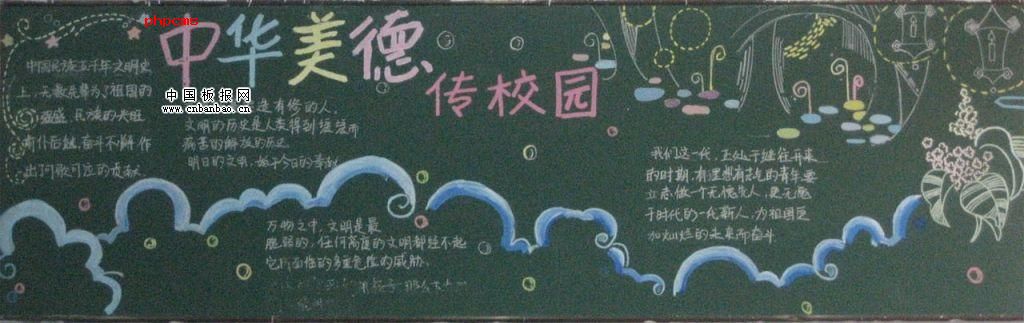 phpcms
中华美德
传校园
中国板报网
www.cnbanbao.cn
中国民族五千年文明史
上，无数先辈为了祖国的
强盛，民族的兴旺
前仆后继，奋斗不懈，作
出可歌可泣的贡献
有修的人，
文明的历史是人类得到
痛苦的解放的历史
明日的文明，始于今日的奉献
万物之中，文明是最
脆弱的，任何高度的文明都经不起
它所面临的多重危险的威胁
我们这一代，正处于继往开来
的时期，有理想有志气的青年要
立志做一个无愧先人，更无愧
于时代的一代新人，为祖国更
加灿烂的未来而奋斗